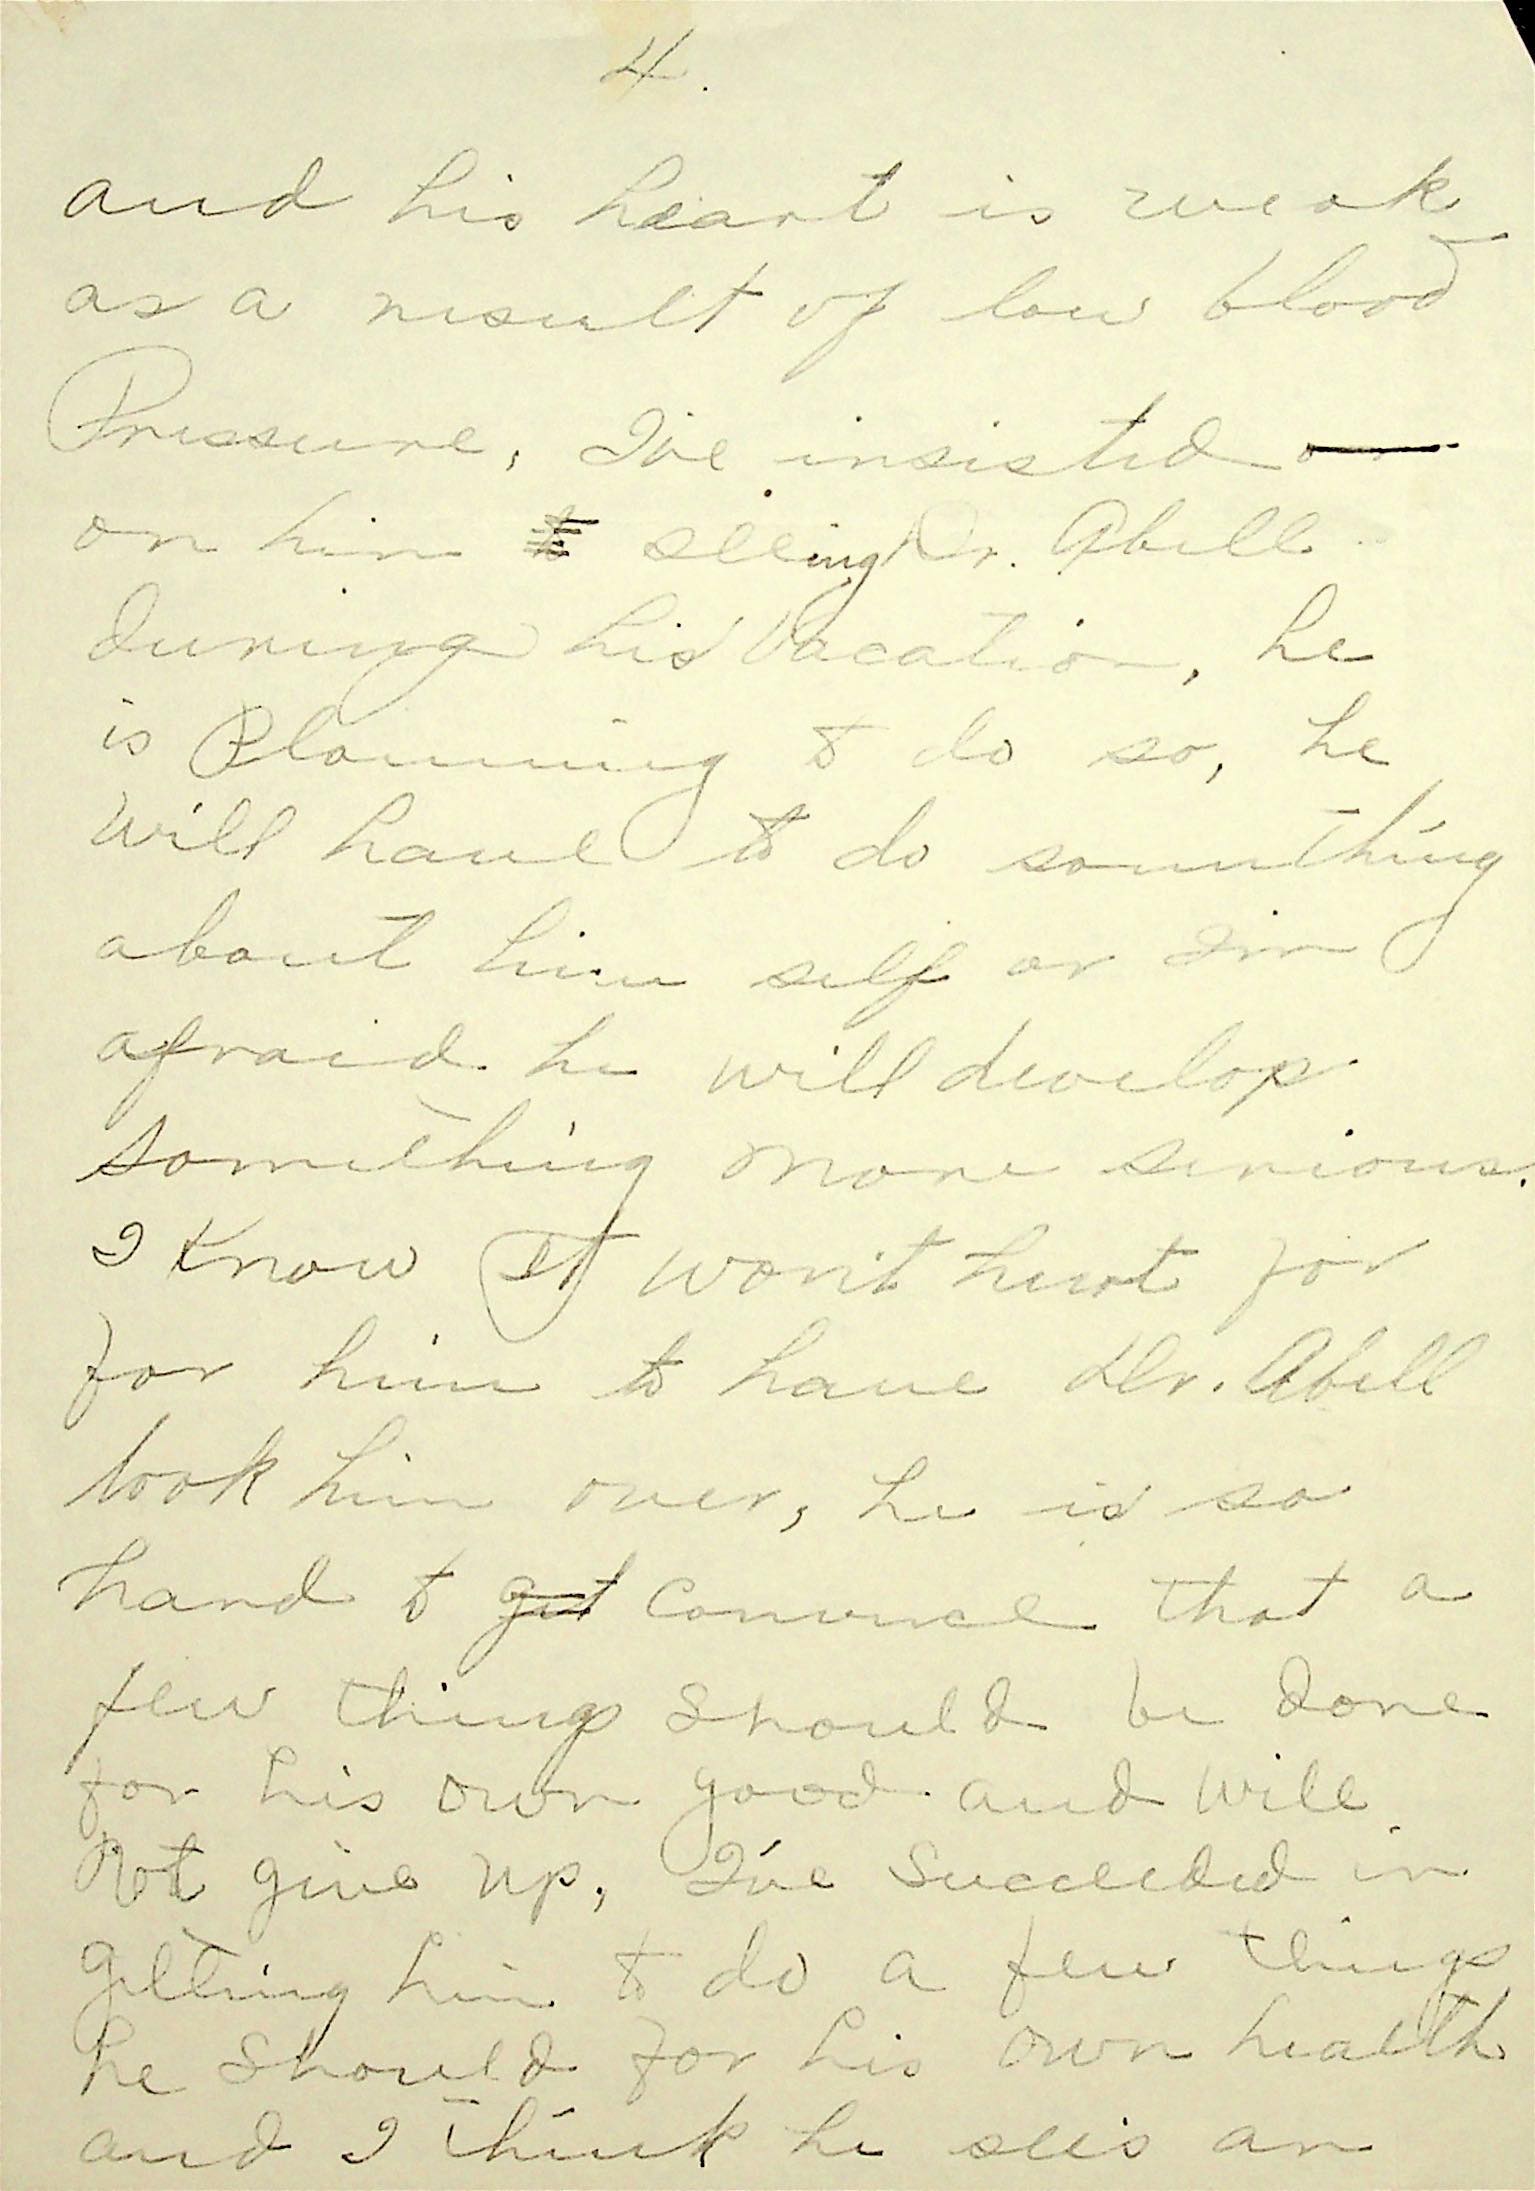 4.
and his heart is weak
as a result of low blood
Pressure, I've insisted on
on him to seeing Dr. Abell
during his Vacation, he
is Planning to do so, he
will have to do something
about him self or I'm
afraid he will develop
something more serious.
I Know It won't hurt for
for him to have Dr. Abell
look him over, he is so
hard to get convince that a
few things should be done
for his own good and will
Not give up, I've succeeded in
getting him to do a few things
he should for his own health
and I think he sees an